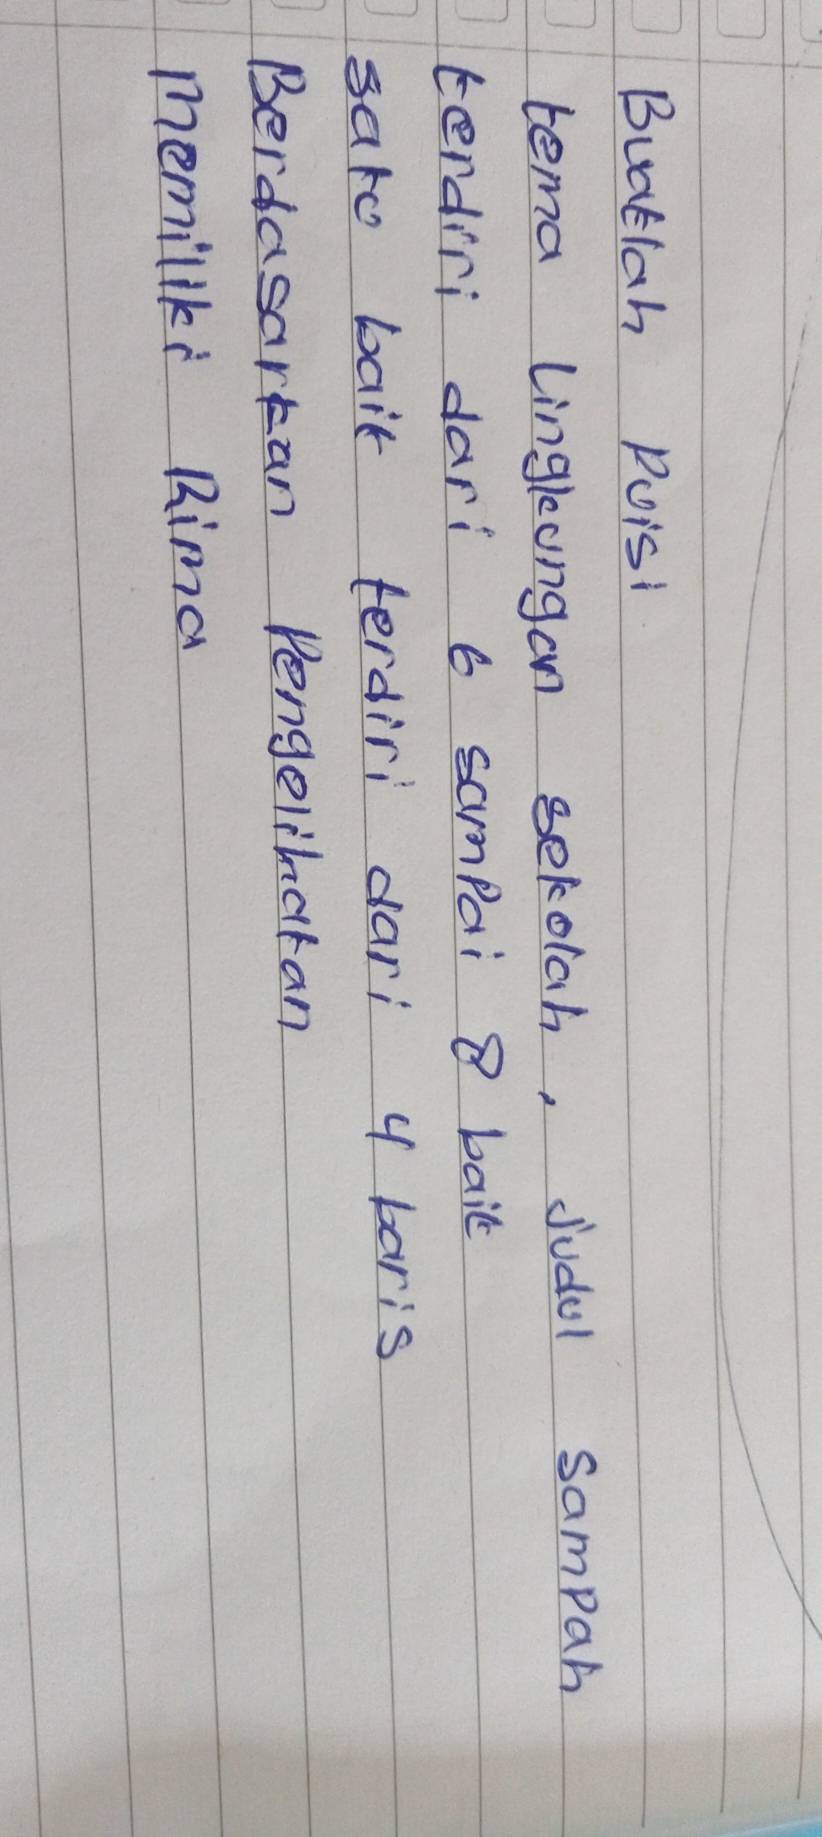 Buatlah Puisi
tema lingkungan sekolah, Judul sampah
terdiri dari 6 sampai 8 bait
satu bait terdiri dari 4 baris
Berdasarkan Pengelihatan
Memiliki Rima